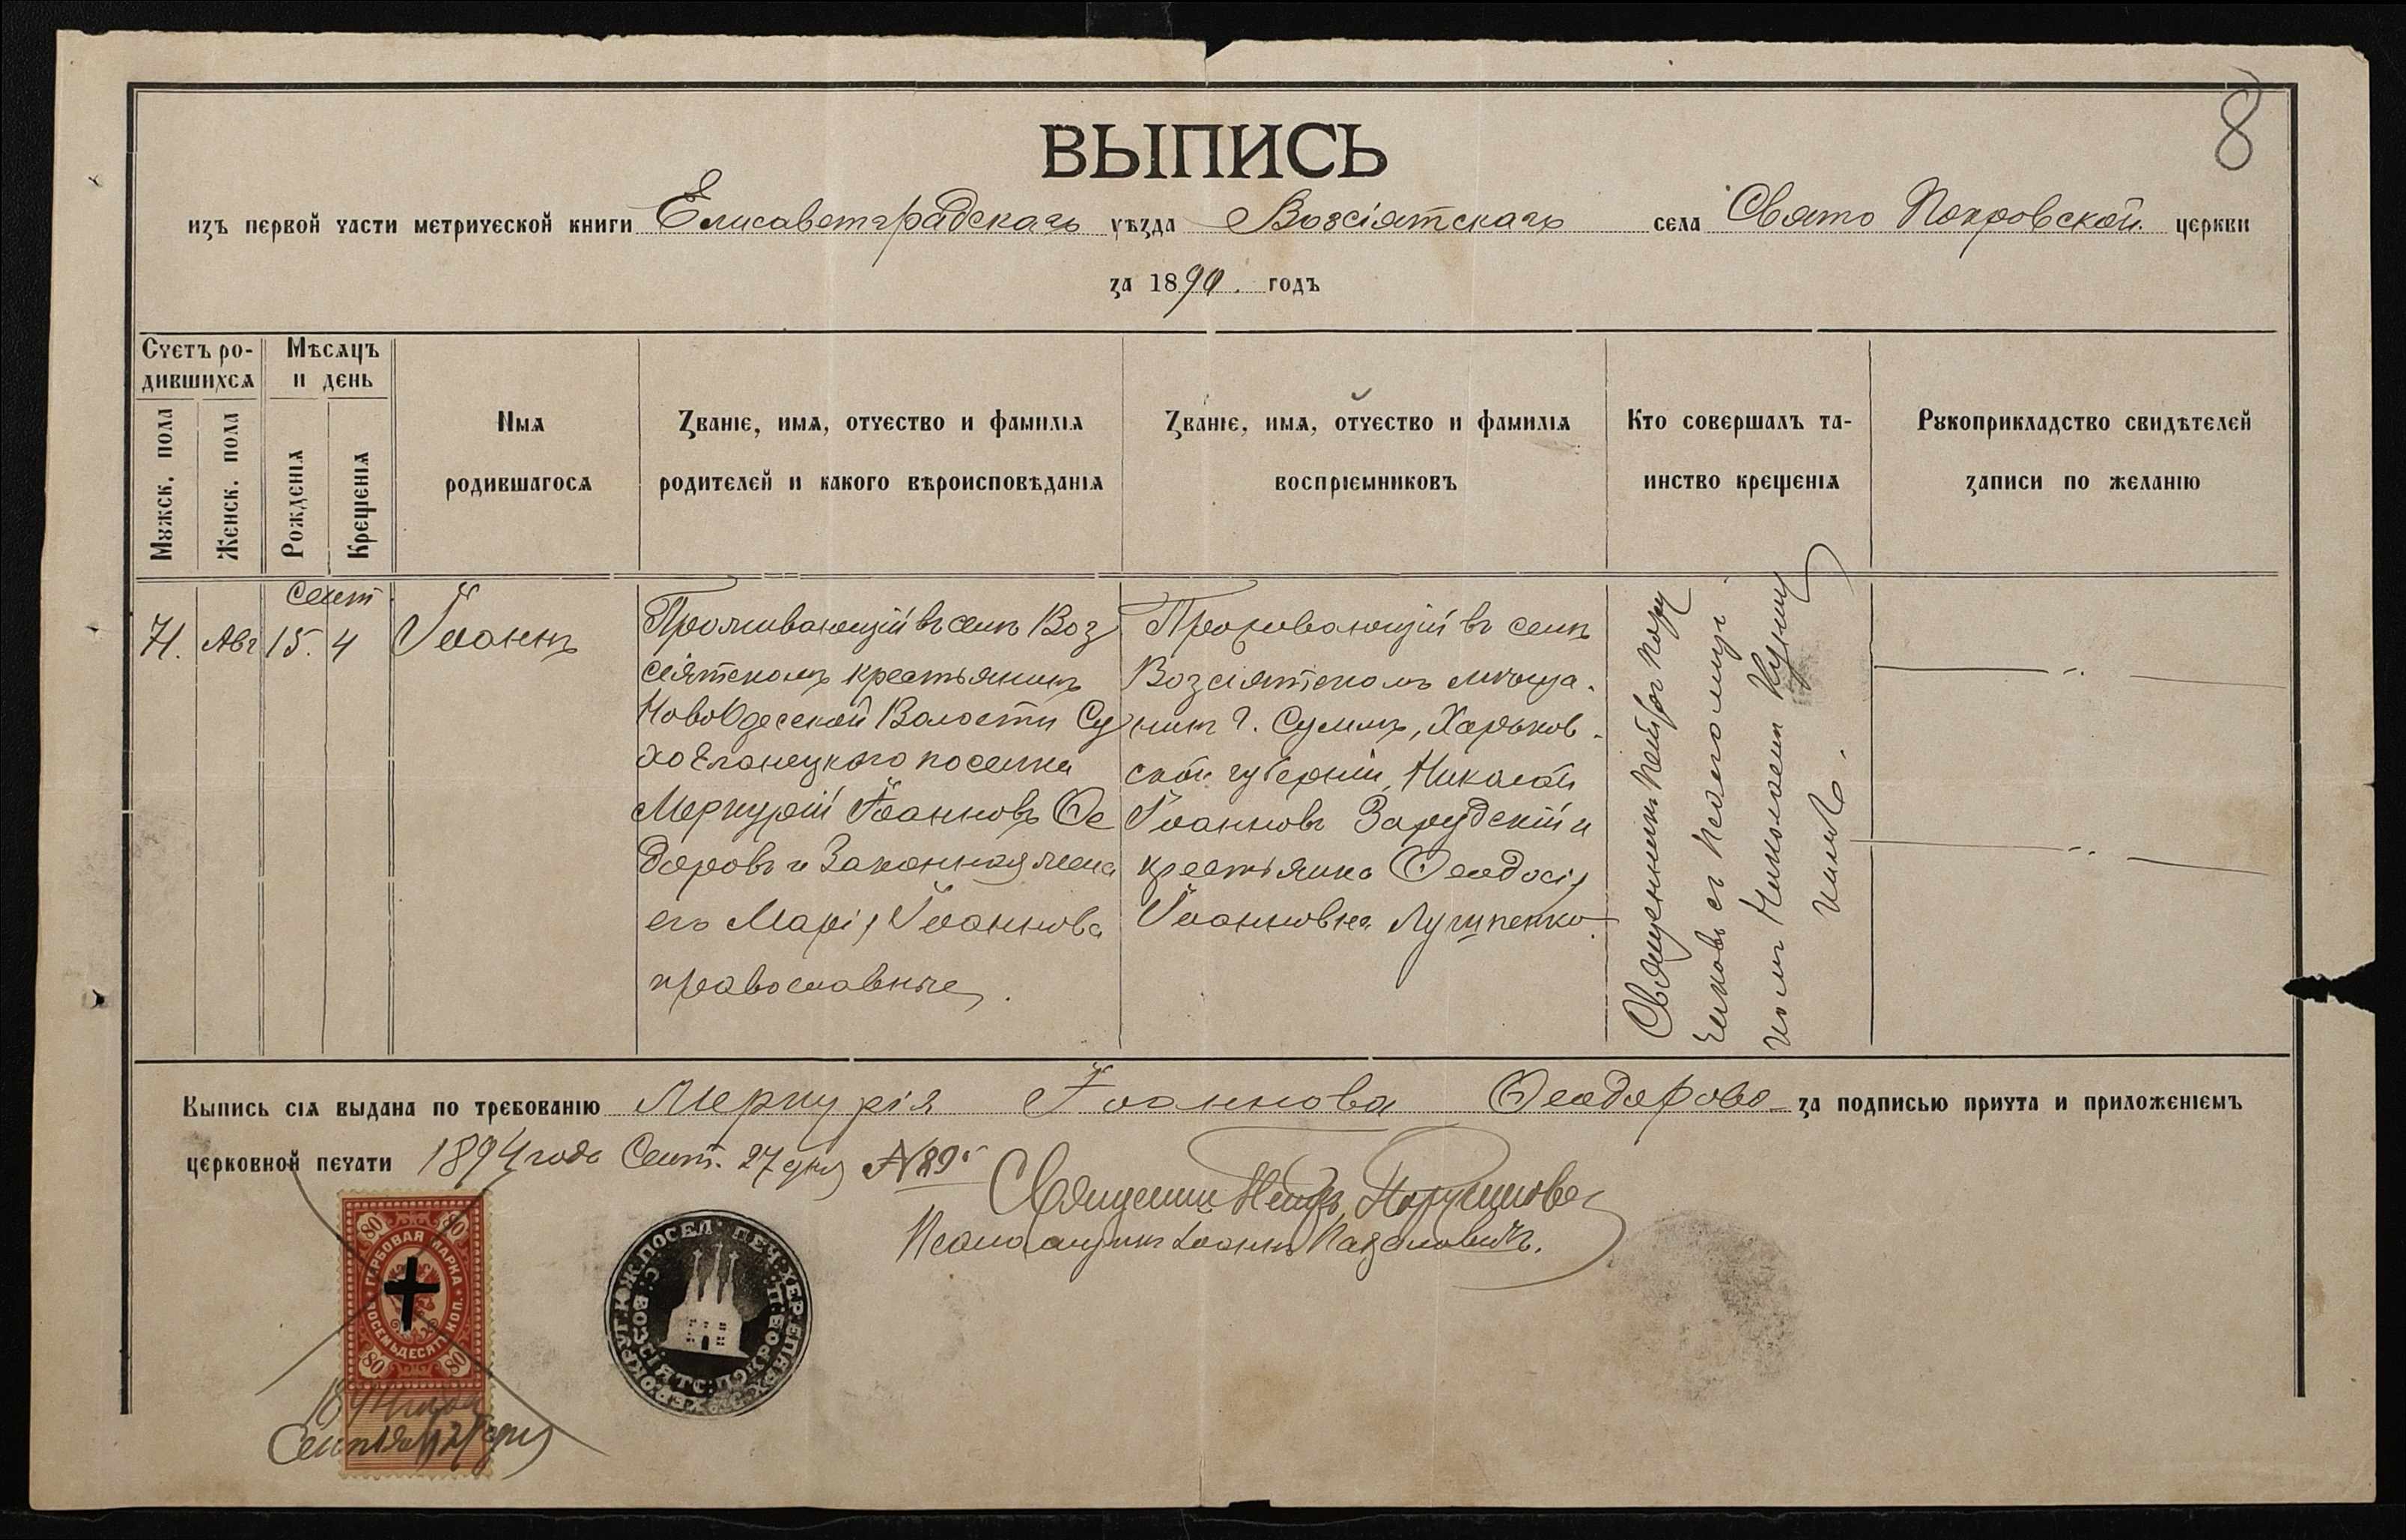 8
ВЫПИСЬ
изъ первой части метрической книги Елисаветградскаго уѣзда Возсіятскаго села Свято Покровской церкви
за 1890. годъ
Счетъ родившихся
Мѣсяцъ и день
Мужск. пола
Женск. пола
Рожденія
Крещенія
Имя
родившагося
Званіе, имя, отчество и фамилія
родителей и какого вѣроисповѣданія
Званіе, имя, отчество и фамилія
воспріемниковъ
Кто совершалъ та-
инство крещенія
Рукоприкладство свидѣтелей
записи по желанію
Сент
71. Авг 15. 4
Іоаннъ
Проживающій въ селѣ Воз
сіятскомъ крестьянинъ
НовоОдесской Волости Су
хоЕланецкого поселка
Меркурій Іоанновъ Ѳе
доровъ и Законная жена
его Марія Іоаннова
православные.
Проживающій въ селѣ
Возсіятскомъ мѣща.
нинъ г. Сумъ, Харьков.
ской губерніи, Николай
Іоанновъ Зарудскій и
крестьянка Ѳеодосія
Іоанновна
Священникъ Петръ
съ Псаломщи
комъ Николаемъ
Выпись сія выдана по требованію Меркурія Іоаннова Ѳеодорова за подписью причта и приложеніемъ
церковной печати 1894 года Сент. 27 дня №89
Священникъ Петръ
Псаломщикъ Іоаннъ
80 80
ГЕРБОВАЯ МАРКА
ВОСЕМЬДЕСЯТЪ КОП.
80 80
1894 года
Сентября 27 дня
ПЕЧ. ХЕР. ЕПАРХ. ХЕР. ОКРУГ. ЮЖ. ПОСЕЛ.
С. ВОЗСІЯТС. ПОКРОВ. Ц.